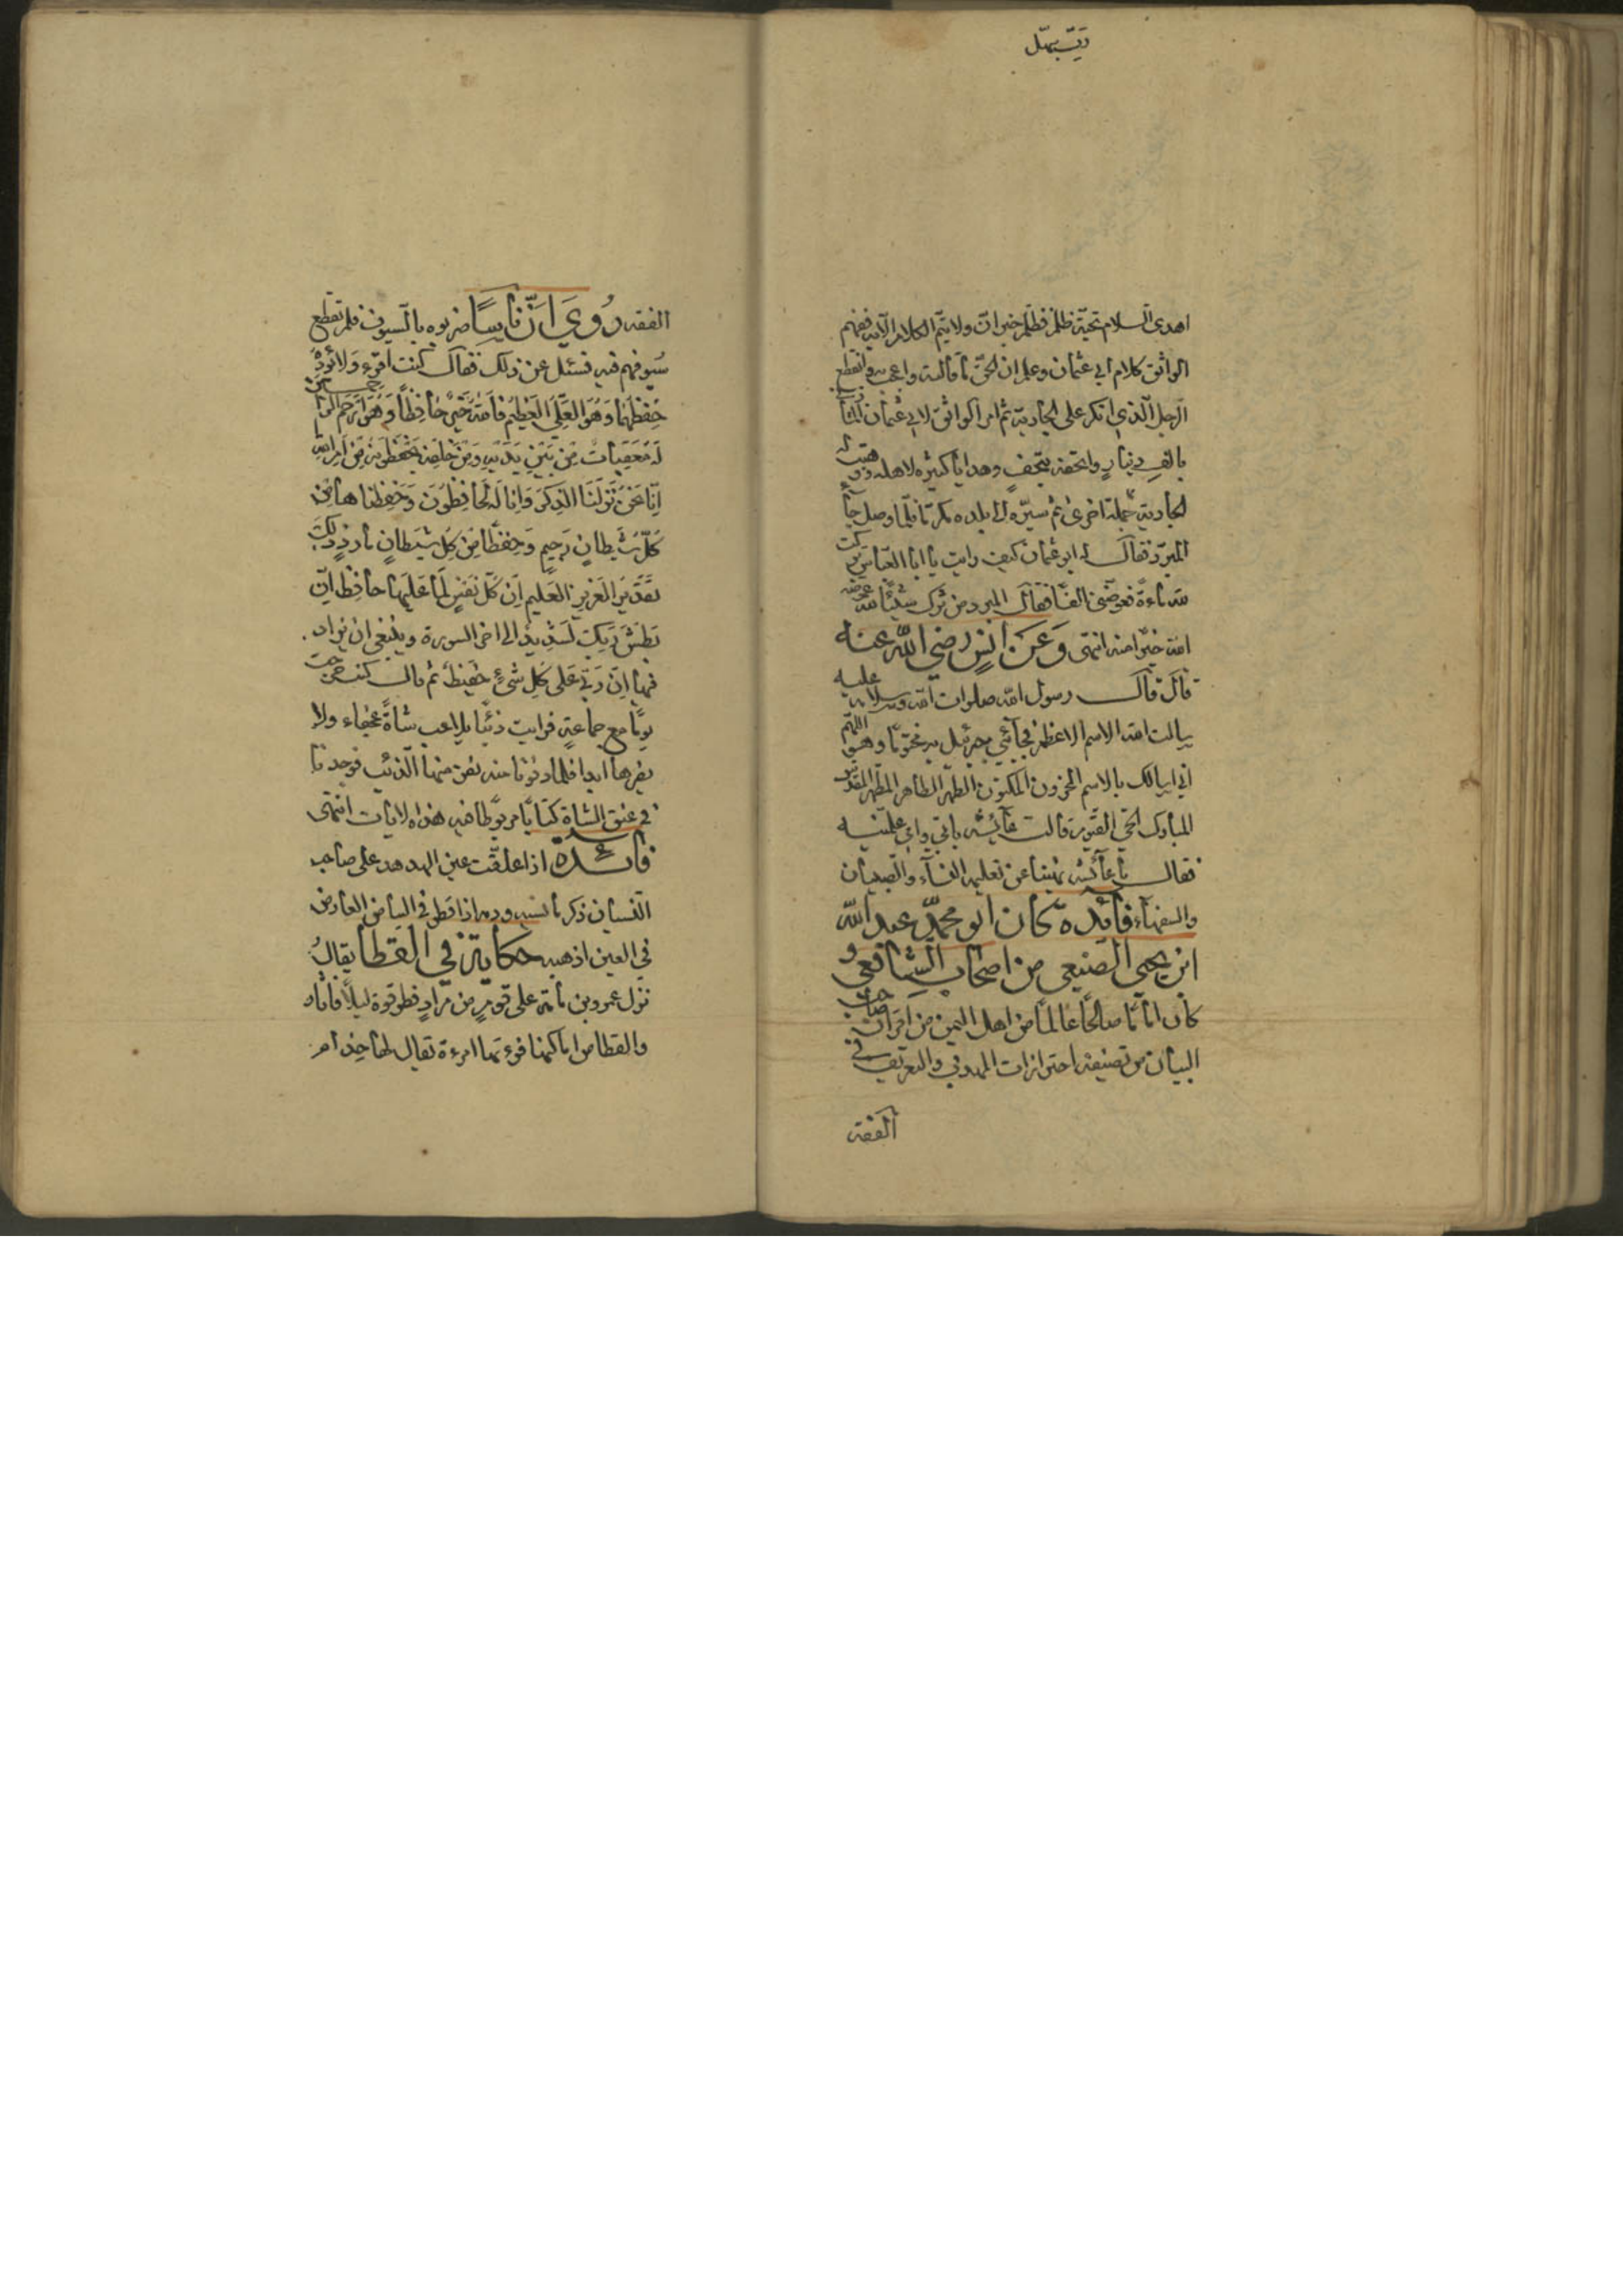 اهدى السلام تحية ظلم فظلم خبر ان ولا يتم الكلام الا به ففهم
الواثق كلام ابي عثمان وعلم ان الحق ما قالت واعجب به وانقطع
الرجل الذي انكر على الجارية ثم امر الواثق لابي عثمان المازني
بالف دينار واتحفه بتحف وهدايا كثيرة لاهله ووهبت له
الجارية جملة اخرى ثم سيره الى بلده مكرما فلما وصل جاء
المبرد فقال له ابو عثمان كيف رايت يا ابا العباس تركت
لله ماءة فعوضني الفا فقال المبرد من ترك شيئا لله عوضه
الله خيرا منه انتهى وَعَن انسٍ رضي الله عنه
قال قال رسول الله صلوات الله وسلامه عليه
سالت الله الاسم الاعظم فجائني جبرئيل به مختوما وهو اللهم
اني اسالك بالاسم المخزون المكنون الطهر الطاهر المطهر المقدس
المبارك الحي القيوم قالت عائشه بابي وامي علمنيه
فقال يا عائشه نهينا عن تعليمه النسآء والصبيان
والسفهاء فايده كان ابو محمد عبد الله
ابن يحيى الصنيعي من اصحاب الشافعي و
كان اماما صالحا عالما من اهل اليمن من اقران صاحب
البيان من تصنيفه احترازات المهذب والتعريف في
الفقه
الفقه رُوِيَ اَنَّ نَاسًا ضربوه بالسيوف فلم تقطع
سيوفهم فيه فسئل عن ذلك فقال كنت اقرء وَلا يَؤدهُ
حِفظهُمَا وَهُوَ العَلِيُّ العَظِيْمُ فَاللهُ خَيْرٌ حَافِظًا وَهُوَ اَرْحَمُ الراحمين
لَهُ مُعَقِّبَاتٌ مِن بَيْنِ يَدَيْهِ وَمِنْ خَلْفِهِ يَحْفَظُونَهُ مِنْ اَمْرِ اللهِ
اِنَّا نَحْنُ نَزَّلْنَا الذِّكْرَ وَاِنَّا لَهُ لَحَافِظُوْنَ وَحَفِظْنَاهَا مِنْ
كُلِّ شَيطانٍ رَجِيمٍ وَحِفْظًا مِنْ كُلِّ شَيطانٍ مَارِدٍ ذٰلِكَ
تَقْدِيرُ العَزِيزِ العَلِيمِ اِنْ كُلُّ نَفْسٍ لَمَّا عَلَيهَا حَافِظٌ اِنَّ
بَطْشَ رَبِّكَ لَشَدِيدٌ الى اخر السورة وينبغي ان يزاد
فيها اِنَّ رَبِّي عَلَى كُلِّ شَيْءٍ حَفِيظٌ ثم قال كنت خرجت
يوما مع جماعة فرايت ذئبا يلاعب شاة عجفاء ولا
يضرها ابدا فلما دنونا منه نفر منها الذئب فوجدنا
في عنق الشاة كتابا مربوطا فيه هذه الايات انتهى
فائدة اذا علقت عين الهدهد على صاحب
النسيان ذكر ما نسيه ودمه اذا قطر في البياض العارض
في العين اذهبه حكاية في القطا يقال
نزل عمرو بن مامة على قوم من مراد فطرقوه ليلا فاثاروا
والقطا من اماكنها فرءتها امرءة تقال لها حذام